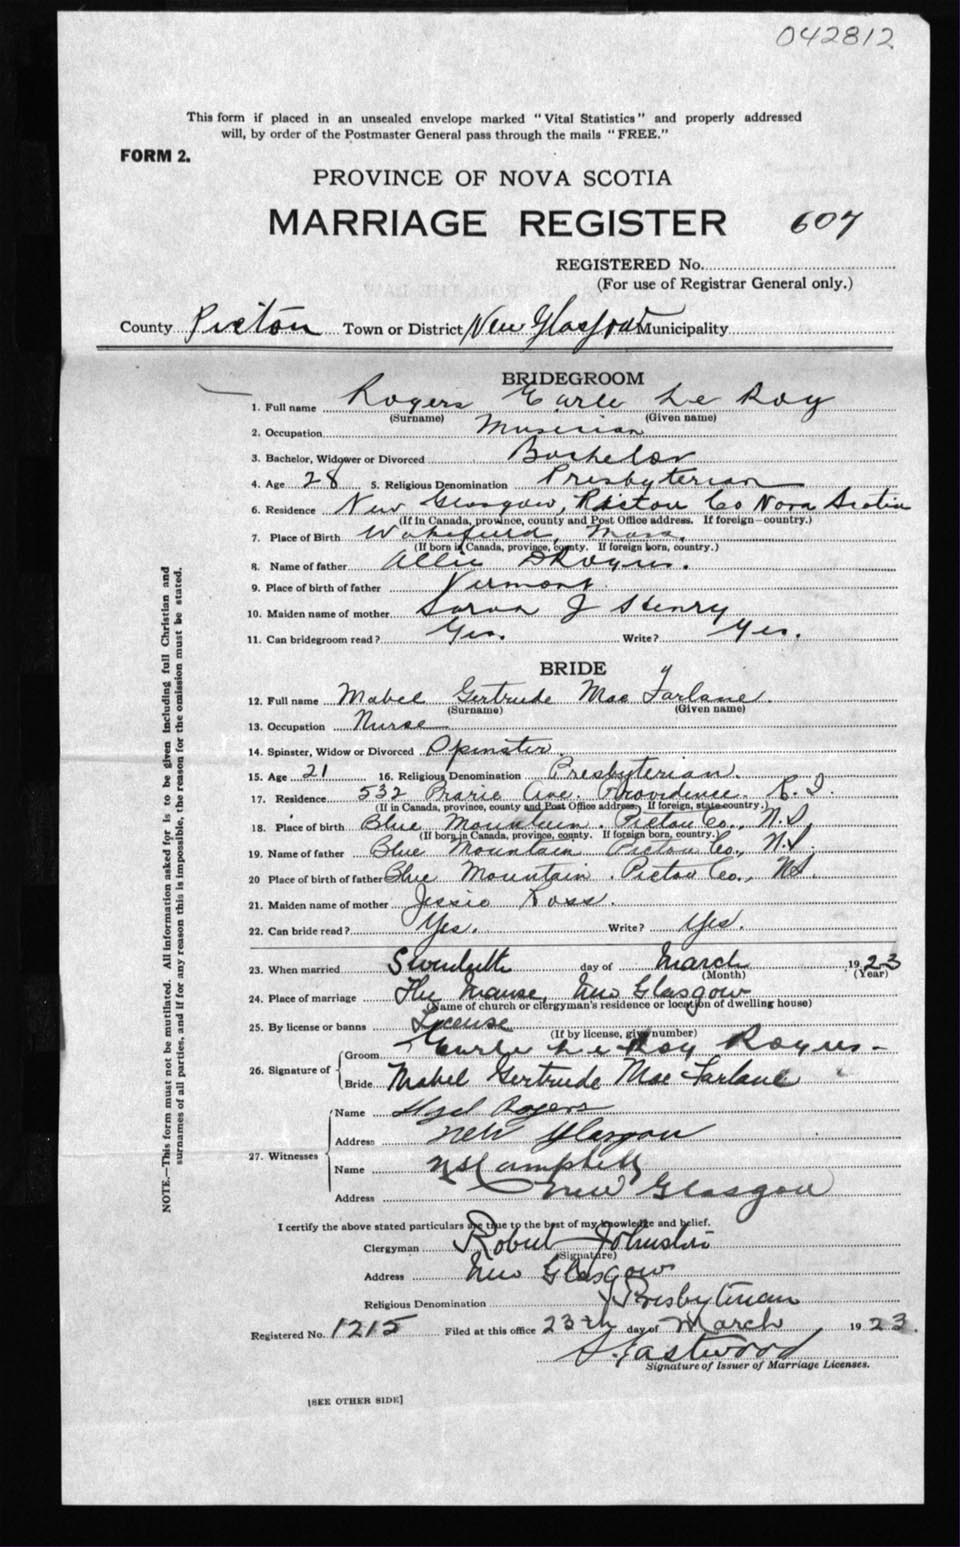 042812
This form if placed in an unsealed envelope marked "Vital Statistics" and properly addressed
will, by order of the Postmaster General pass through the mails "FREE."
FORM 2.
PROVINCE OF NOVA SCOTIA
MARRIAGE REGISTER 607
REGISTERED No.
(For use of Registrar General only.)
County Pictou Town or District New Glasgow Municipality
BRIDEGROOM
1. Full name Rogers Earle Le Roy
(Surname) (Given name)
2. Occupation Musician
3. Bachelor, Widower or Divorced Bachelor
4. Age 28 5. Religious Denomination Presbyterian
6. Residence New Glasgow, Pictou Co Nova Scotia
(If in Canada, province, county and Post Office address. If foreign—country.)
7. Place of Birth Wakefield, Mass.
(If born in Canada, province, county. If foreign born, country.)
8. Name of father Allie D Rogers.
9. Place of birth of father Vermont.
10. Maiden name of mother Sarah J Henry
11. Can bridegroom read? Yes. Write? Yes.
BRIDE
12. Full name Mabel Gertrude Mac Farlane.
(Surname) (Given name)
13. Occupation Nurse
14. Spinster, Widow or Divorced Spinster.
15. Age 21 16. Religious Denomination Presbyterian.
17. Residence 532 Prarie Ave. Providence. R. I.
(If in Canada, province, county and Post Office address. If foreign, state country.)
18. Place of birth Blue Mountain. Pictou Co., N.S.
(If born in Canada, province, county. If foreign born, country.)
19. Name of father Blue Mountain Pictou Co., N.S.
20 Place of birth of father Blue Mountain. Pictou Co., N.S.
21. Maiden name of mother Jessie Ross.
22. Can bride read? Yes. Write? Yes.
23. When married day of March 1923
(Month) (Year)
24. Place of marriage The Manse, New Glasgow
(Name of church or clergyman's residence or location of dwelling house)
25. By license or banns License
(If by license, give number)
26. Signature of
Groom Earle Le Roy Rogers
Bride Mabel Gertrude Mac Farlane
27. Witnesses
Name Rogers
Address New Glasgow
Name Campbell
Address New Glasgow
I certify the above stated particulars are true to the best of my knowledge and belief.
Clergyman Robert Johnston
(Signature)
Address New Glasgow
Religious Denomination Presbyterian
Registered No. 1215 Filed at this office 23th day of March 1923.
S. Eastwood
Signature of Issuer of Marriage Licenses.
[SEE OTHER SIDE]
NOTE.—This form must not be mutilated. All information asked for is to be given including full Christian and
surnames of all parties, and if for any reason this is impossible, the reason for the omission must be stated.